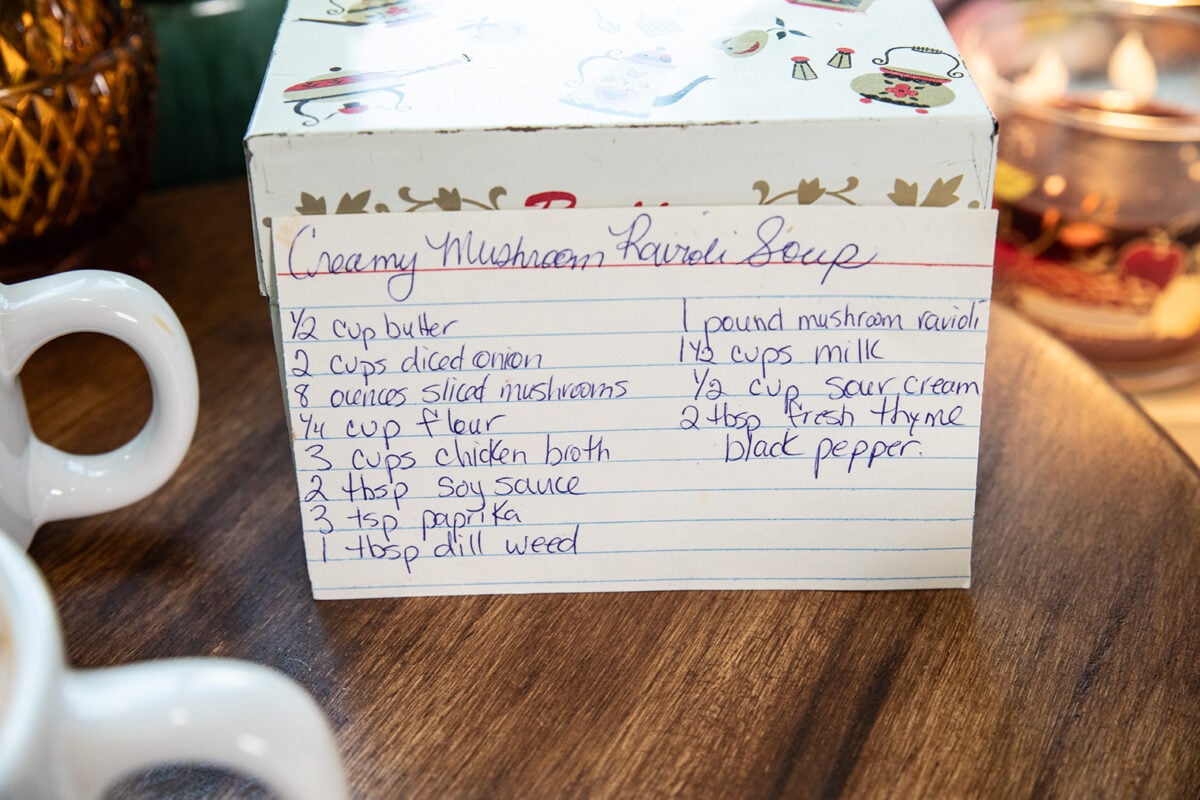 Creamy Mushroom Ravioli Soup
½ cup butter
2 cups diced onion
8 ounces sliced mushrooms
¼ cup flour
3 cups chicken broth
2 tbsp soy sauce
3 tsp paprika
1 tbsp dill weed
1 pound mushroom ravioli
1 ½ cups milk
½ cup sour cream
2 tbsp fresh thyme
black pepper.